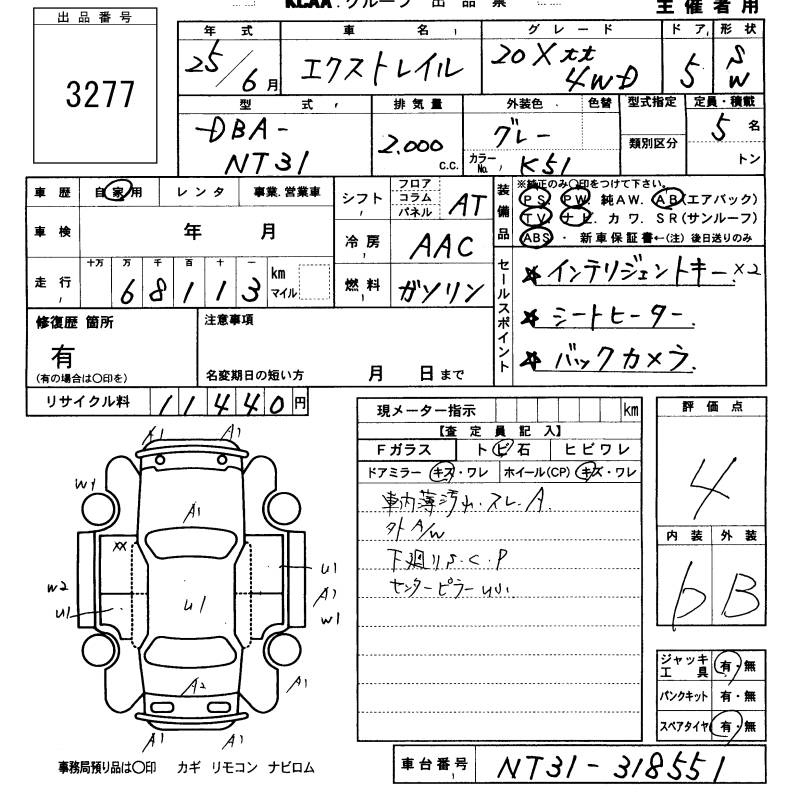 KCAA グループ 出品票
主催者用
出品番号
3277
年式 車名 グレード ドア 形状
25/6月 エクストレイル 20X tt 4WD 5 SW
型式 排気量 外装色 色替 型式指定 定員・積載
DBA-NT31 2.000 C.C. グレー カラーNo. K51 類別区分 5名 トン
車歴 自家用 レンタ 事業.営業車
車検 年 月
走行 十万 万 千 百 十 一
68113 km マイル
シフト フロア コラム パネル AT
冷房 AAC
燃料 ガソリン
装備品 ※純正のみ〇印をつけて下さい。
PS. PW. 純AW. AB(エアバック)
TV. ナビ. カワ. SR(サンルーフ)
ABS ・ 新車保証書←(注) 後日送りのみ
セールスポイント
☆ インテリジェントキー ×2
☆ シートヒーター.
☆ バックカメラ.
修復歴 箇所
有
(有の場合は〇印を)
注意事項
名変期日の短い方 月 日まで
リサイクル料 11440円
現メーター指示 km
【査定員記入】
Fガラス トビ石 ヒビワレ
ドアミラー キズ・ワレ ホイール(CP) キズ・ワレ
車内薄汚れ.スレ.A.
外A/W
下廻りS.C.P
センターピラー
評価点
4
内装 外装
b B
ジャッキ工具 有・無
パンクキット 有・無
スペアタイヤ 有・無
A1 A1
W1
A1
XX
W2
U1
U1
U1
A1
W1
A2
A1
A1 A1
事務局預り品は〇印 カギ リモコン ナビロム
車台番号 NT31-318551